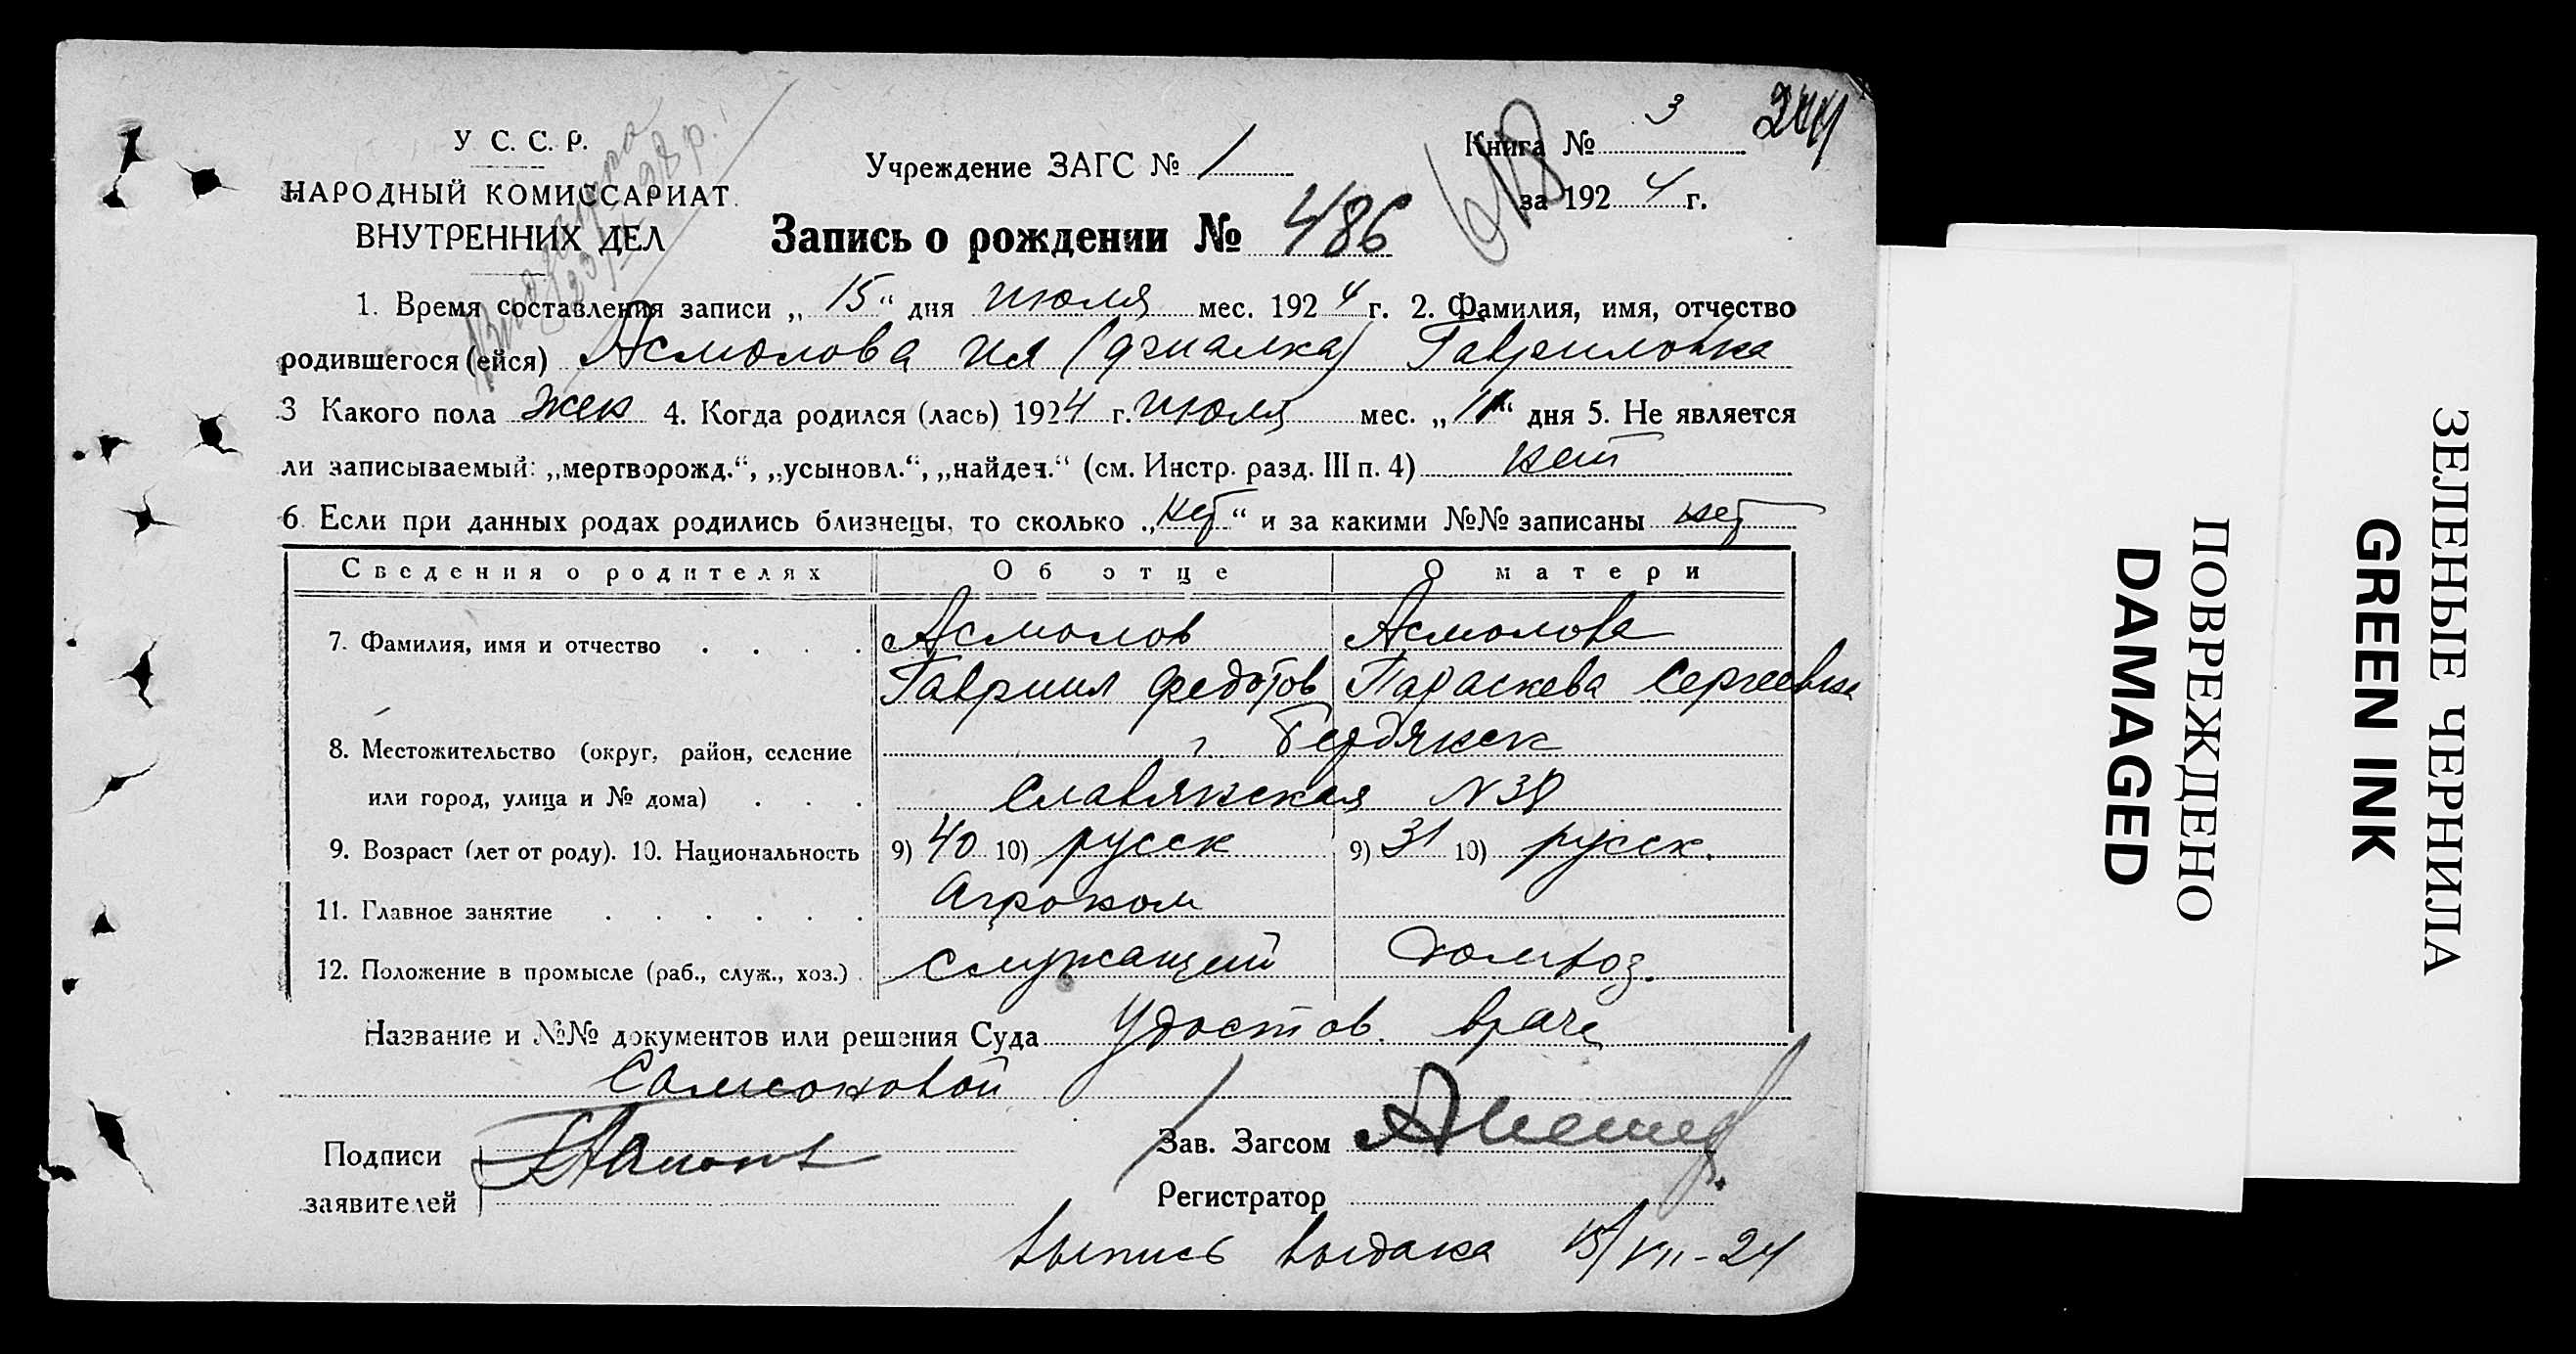 У С. С. Р.
НАРОДНЫЙ КОМИССАРИАТ
ВНУТРЕННИХ ДЕЛ
Учреждение ЗАГС № 1
Книга № 3
за 1924 г.
Запись о рождении № 486
1. Время составления записи „15“ дня июля мес. 1924 г. 2. Фамилия, имя, отчество
родившегося (ейся) Асмолова Ия (фиалка) Гавриловна
3 Какого пола жен 4. Когда родился (лась) 1924 г. июля мес. „11“ дня 5. Не является
ли записываемый: „мертворожд.“, „усыновл.“, „найден.“ (см. Инстр. разд. III п. 4) нет
6. Если при данных родах родились близнецы, то сколько „нет“ и за какими №№ записаны нет
Сведения о родителях Об отце О матери
7. Фамилия, имя и отчество . . . . Асмолов Асмолова
Гавриил Федотов Параскева Сергеевна
8. Местожительство (округ, район, селение г. Бердянск
или город, улица и № дома) . . . Славянская N 38
9. Возраст (лет от роду). 10. Национальность 9) 40 10) русск 9) 31 10) русск.
11. Главное занятие . . . . . . Агроном
12. Положение в промысле (раб., служ., хоз.) . служащий домхоз.
Название и №№ документов или решения Суда Удостов. врача
Самсоновой
Подписи
заявителей
Зав. Загсом
Регистратор
выпись выдана 15/VII-24
ПОВРЕЖДЕНО
DAMAGED
ЗЕЛЕНЫЕ ЧЕРНИЛА
GREEN INK